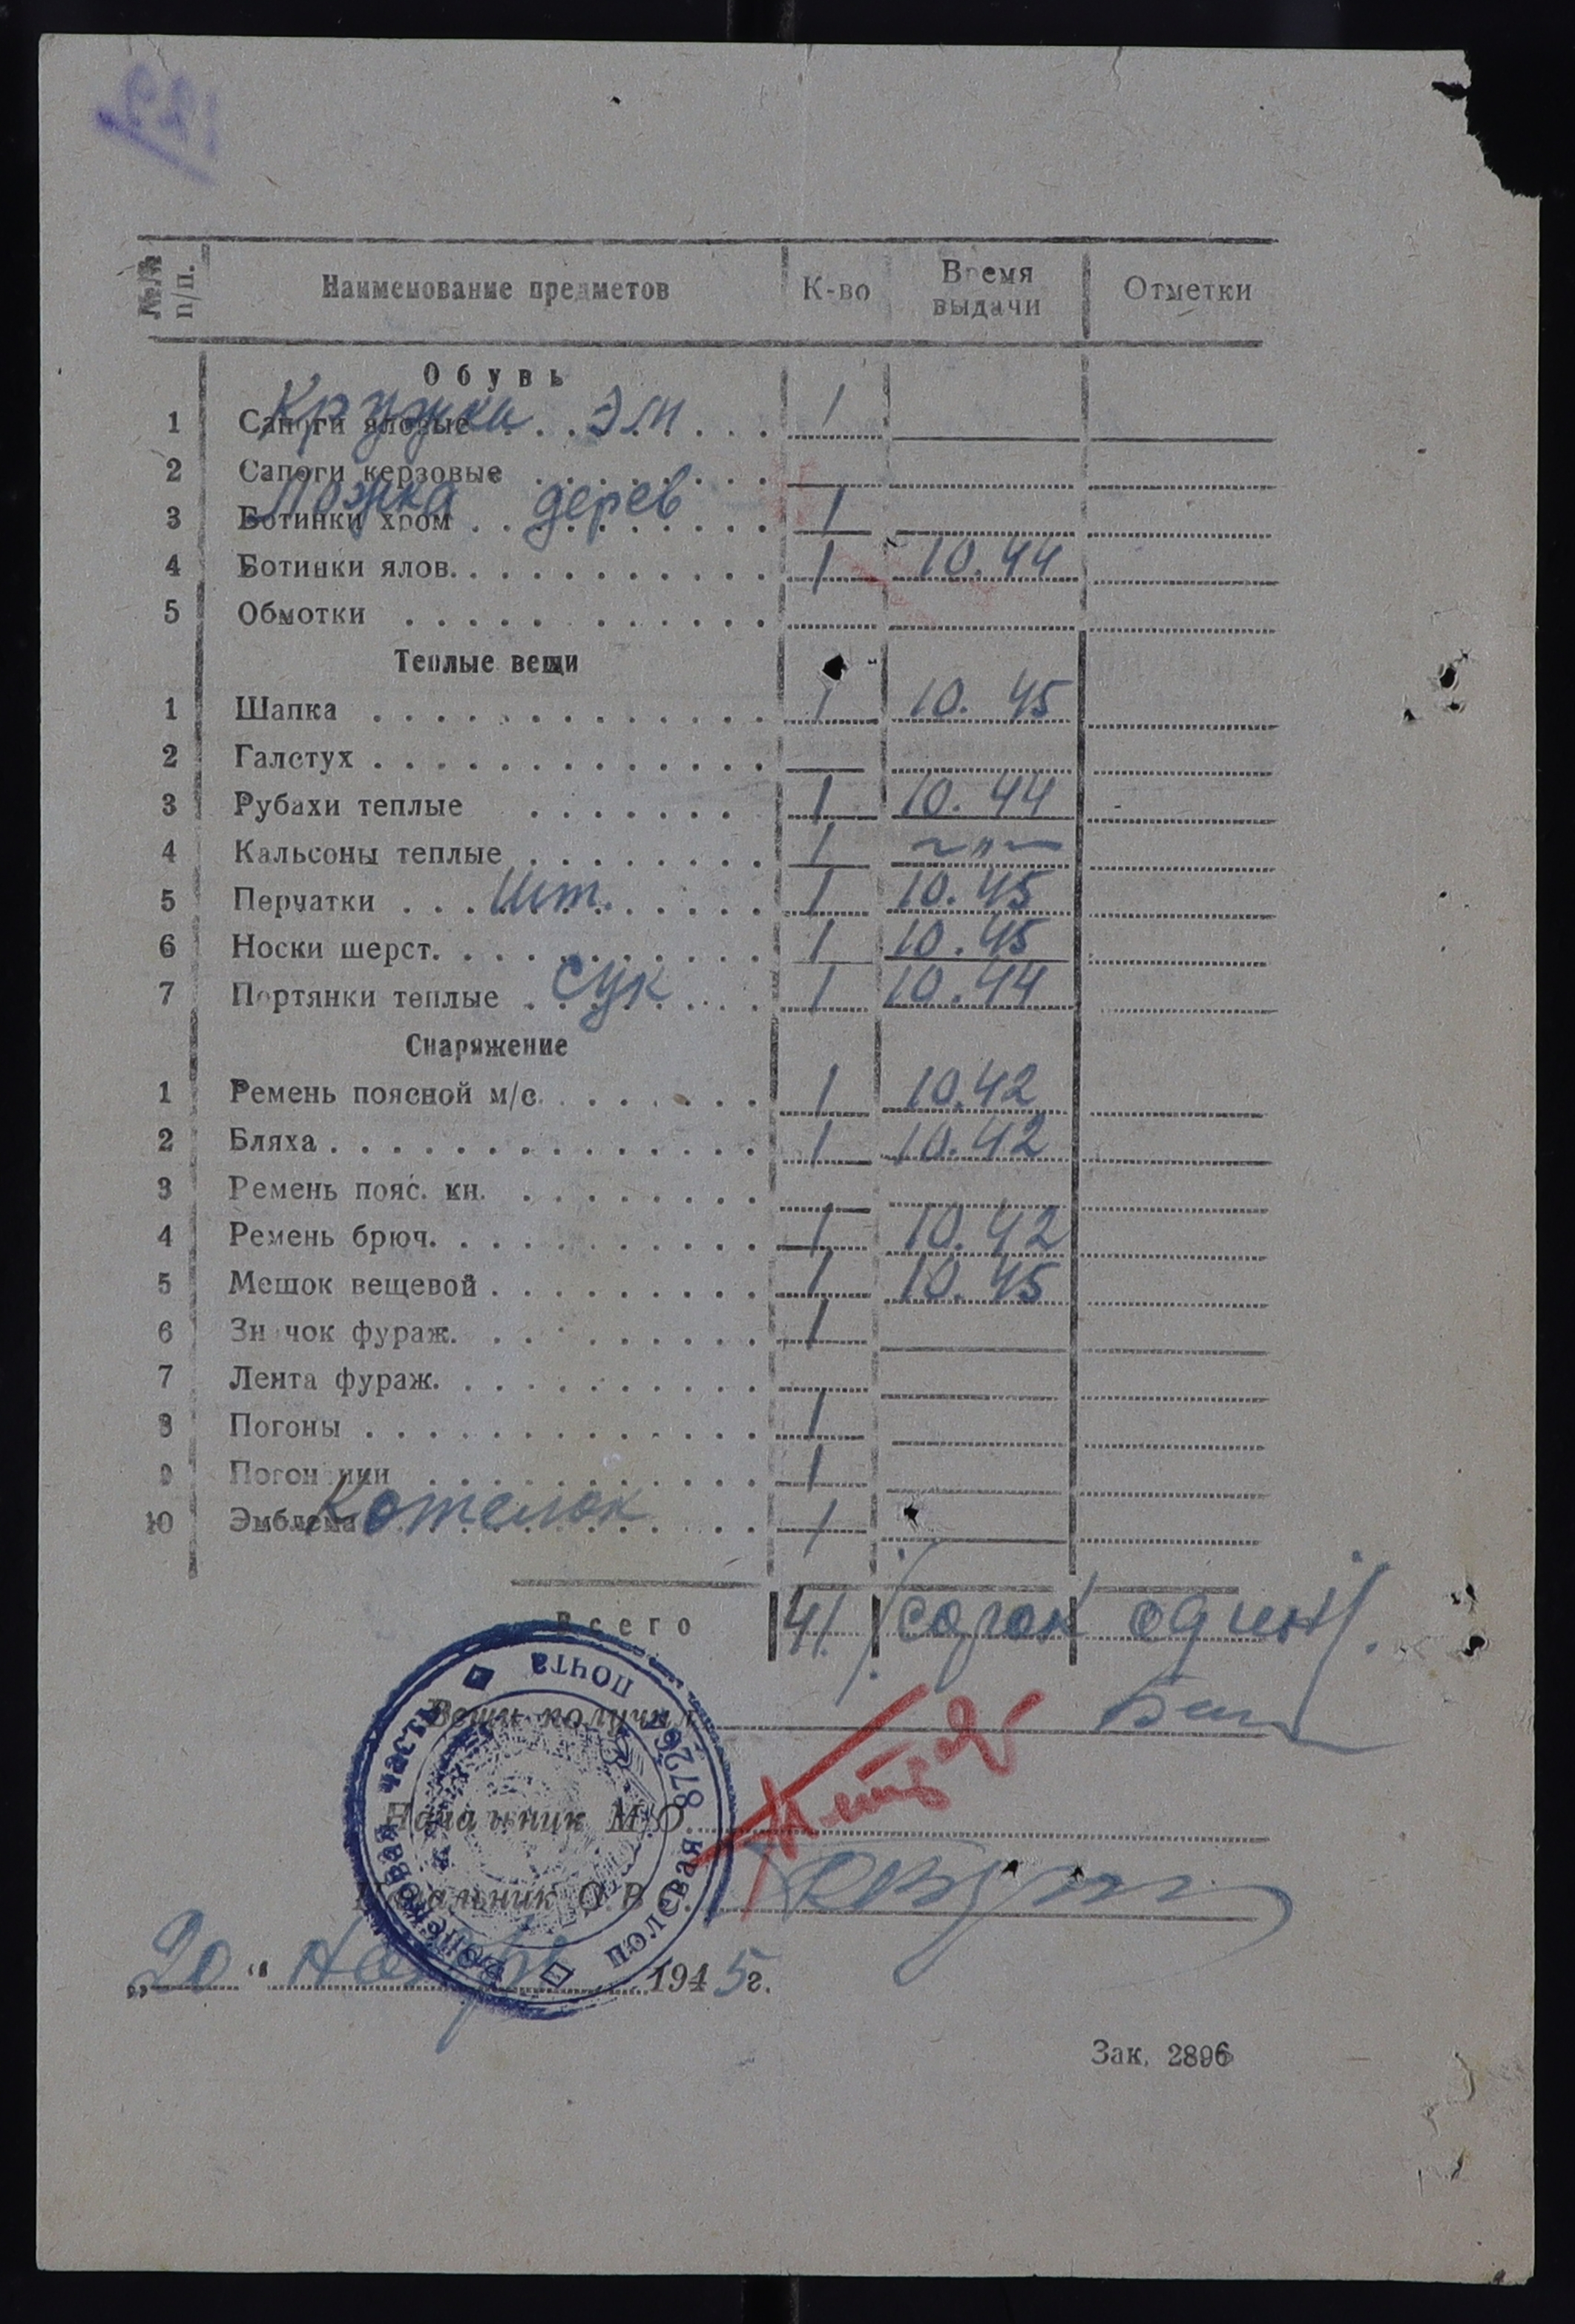 №/№ п/п. Наименование предметов К-во Время выдачи Отметки
Обувь
1 Сапоги яловые Кружка эм 1
2 Сапоги керзовые
3 Ботинки хром Ложка дерев 1
4 Ботинки ялов. 1 10.44
5 Обмотки
Теплые вещи
1 Шапка 1 10.45
2 Галстух
3 Рубахи теплые 1 10.44
4 Кальсоны теплые 1 ~"~
5 Перчатки шт. 1 10.45
6 Носки шерст. 1 10.45
7 Портянки теплые сук 1 10.44
Снаряжение
1 Ремень поясной м/с 1 10.42
2 Бляха 1 10.42
3 Ремень пояс. кн.
4 Ремень брюч. 1 10.42
5 Мешок вещевой 1 10.45
6 Зн чок фураж. 1
7 Лента фураж.
8 Погоны 1
9 Погончики 1
10 Эмблема Котелок 1
Всего 41 /сорок один/.
Вещи получил
Начальник М.О.
Начальник О.В.С.
„20“ Ноября 1945г.
полевая почта 87267
войсковая часть
Зак. 2896